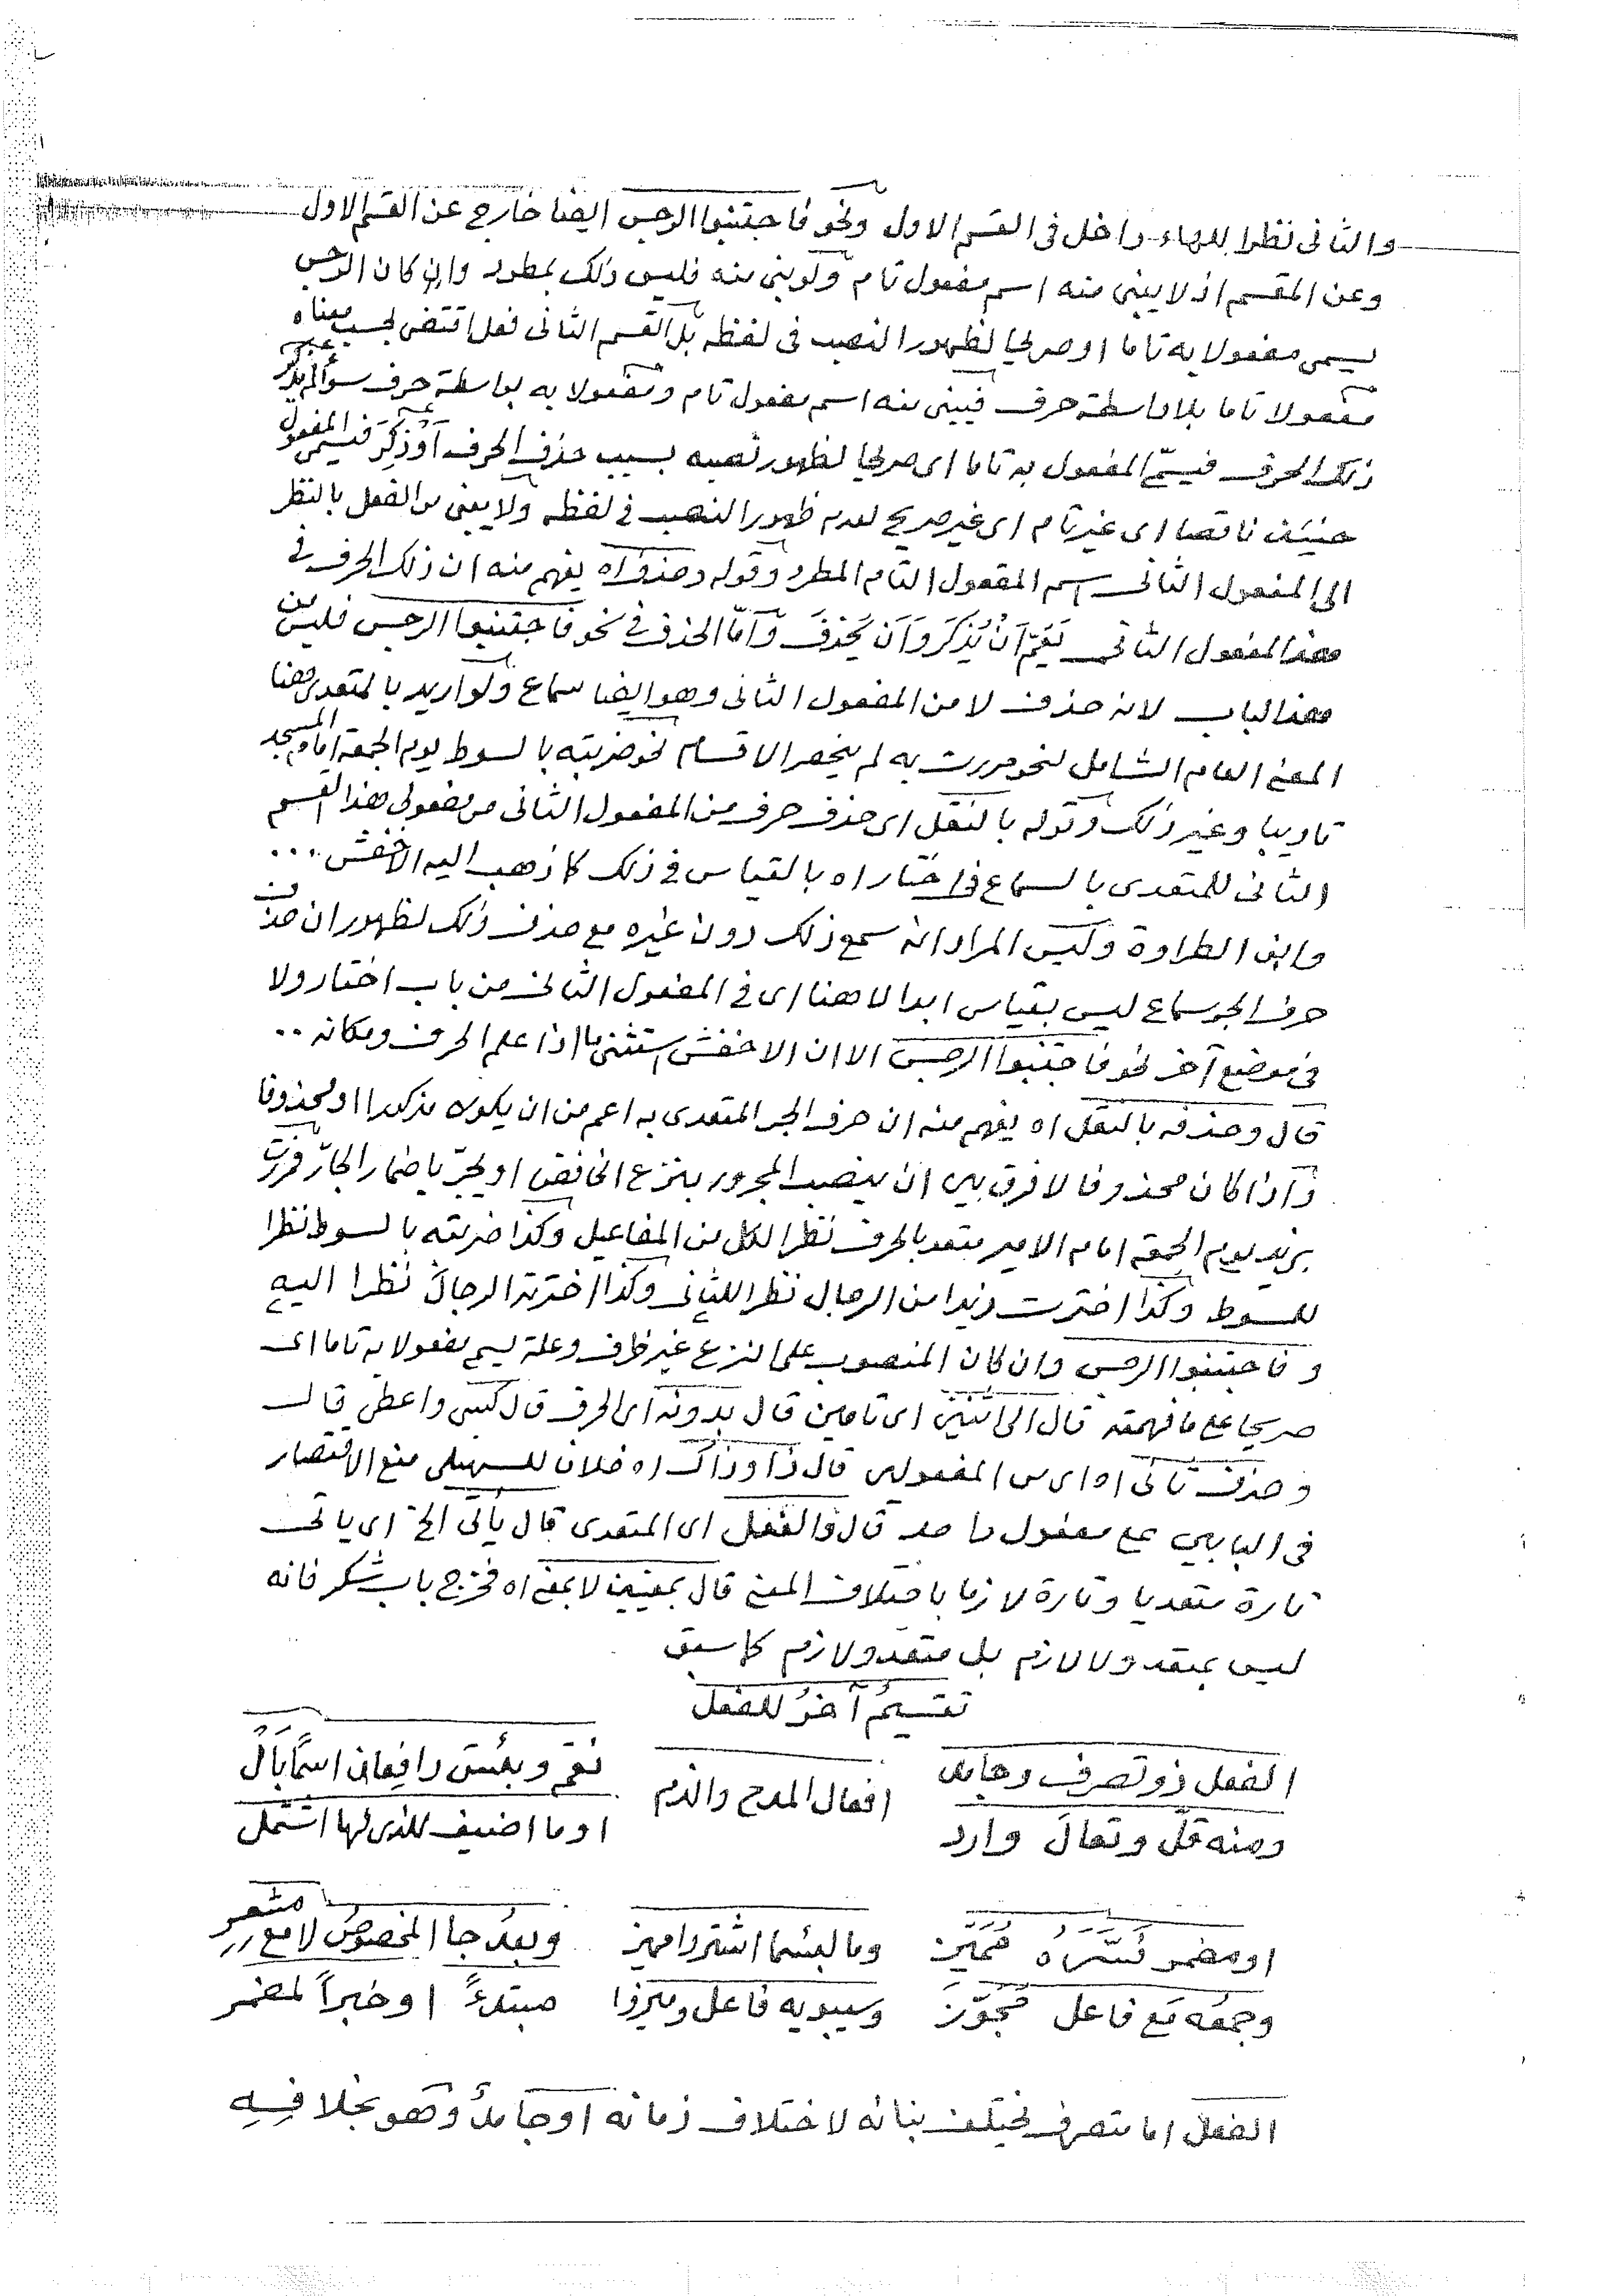 والثانى نظرا للهاء داخل فى القسم الاول ونحو فاجتنبوا الرجس ايضا خارج عن القسم الاول
وعن المقسم اذ لا يبنى منه اسم مفعول تام ولو بنى منه فليس ذلك بمطرد وان كان الرجس
يسمى مفعولا به تاما او صريحا لظهور النصب فى لفظه بل القسم الثانى فعل اقتضى بحسب معناه
مفعولا تاما بلا واسطة حرف فيبنى منه اسم مفعول تام ومفعولا به بواسطة حرف سواء لم يذكر
ذلك الحرف فيسمّى المفعول به تاما اى صريحا لظهور نصبه بسبب حذف الحرف اَوْ ذُكِرَ فيسمى المفعول
حينئذ ناقصا اى غير تام اى غير صريح لعدم ظهور النصب فى لفظه ولا يبنى من الفعل بالنظر
الى المفعول الثانى اسم المفعول التام المطرد وقوله وحذف اه يفهم منه ان ذلك الحرف فى
هذا المفعول الثانى يَعُمّ اَنْ يُذْكَرَ وَاَن يُحْذَفَ وَاَمّا الحذف فى نحو فاجتنبوا الرجس فليس من
هذا الباب لانه حذف لا من المفعول الثانى وهو ايضا سماع ولو اريد بالمتعدى هنا
المعنى العام الشامل لنحو مررت به لم ينحصر الاقسام نحو ضربته بالسوط يوم الجمعة امام المسجد
تاديبا وغير ذلك وقوله بالنقل اى حذف حرف من المفعول الثانى من مفعولى هذا القسم
الثانى للمتعدى بالسماع فى اختار اه بالقياس فى ذلك كما ذهب اليه الاخفش ...
وابن الطراوة وليس المراد انه سمع ذلك دون غيره مع حذف ذلك لظهور ان حذف
حرف الجر سماع ليس بقياس ابدا لا هنا اى فى المفعول الثانى من باب اختار ولا
فى موضع آخر نحو فاجتنبوا الرجس الا ان الاخفش استثنى ما اذا علم الحرف ومكانه ..
قال وحذفه بالنقل اه يفهم منه ان حرف الجر المتعدى به اعم من ان يكون مذكورا او محذوفا
واذا كان محذوفا لا فرق بين ان ينصب المجرور بنزع الخافض او يجرّ باضمار الجارّ فمررت
بزيد يوم الجمعة امام الامير متعد بالحرف نظرا للكل من المفاعيل وكذا ضربته بالسوط نظرا
للسوط وكذا اخترت زيدا من الرجال نظرا للثانى وكذا اخترته الرجالَ نظرا اليه
وفاجتنبوا الرجس وان كان المنصوب على النزع غير ظرف وعلة يسم مفعولا به تاما اى
صريحا مع ما فهمته قال الى اثنين اى تامين قال بدونه اى الحرف قال كسى واعطى قال
وحذف ثانى اه اى من المفعولين قال ذا وذاك اه خلافا للسهيلى منع الاقتصار
فى البابين على مفعول واحد قال والفعل اى المتعدى قال ياتى الخ اى ياتى
تارة متعديا وتارة لازما باختلاف المعنى قال بمعنيين لا بمعنى اه فخرج باب شكر فانه
ليس بمتعد ولا لازم بل متعد ولازم كما سبق
تقسيمٌ آخرُ للفعل
الفعل ذو تصرف وجامد
ومنه قلّ وتعالَ وارد
افعال المدح والذم
نعم وبئس رافعان اسمًا بَالْ
او ما اضيف للذى لها اشتمل
او مضمر فَسَّرَهُ مُمَيِّز
وجمعه مَع فاعل مُجَوَّز
وما لبئسما اشتروا مميز
وسيبويه فاعل وميزوا
وبعدُ جا المخصوصُ لا مع مشعر
مبتدءً او خبراً لمضمر
الفعل اما متصرف يختلف بنائه لاختلاف زمانه او جامدٌ وهو بخلافِهِ